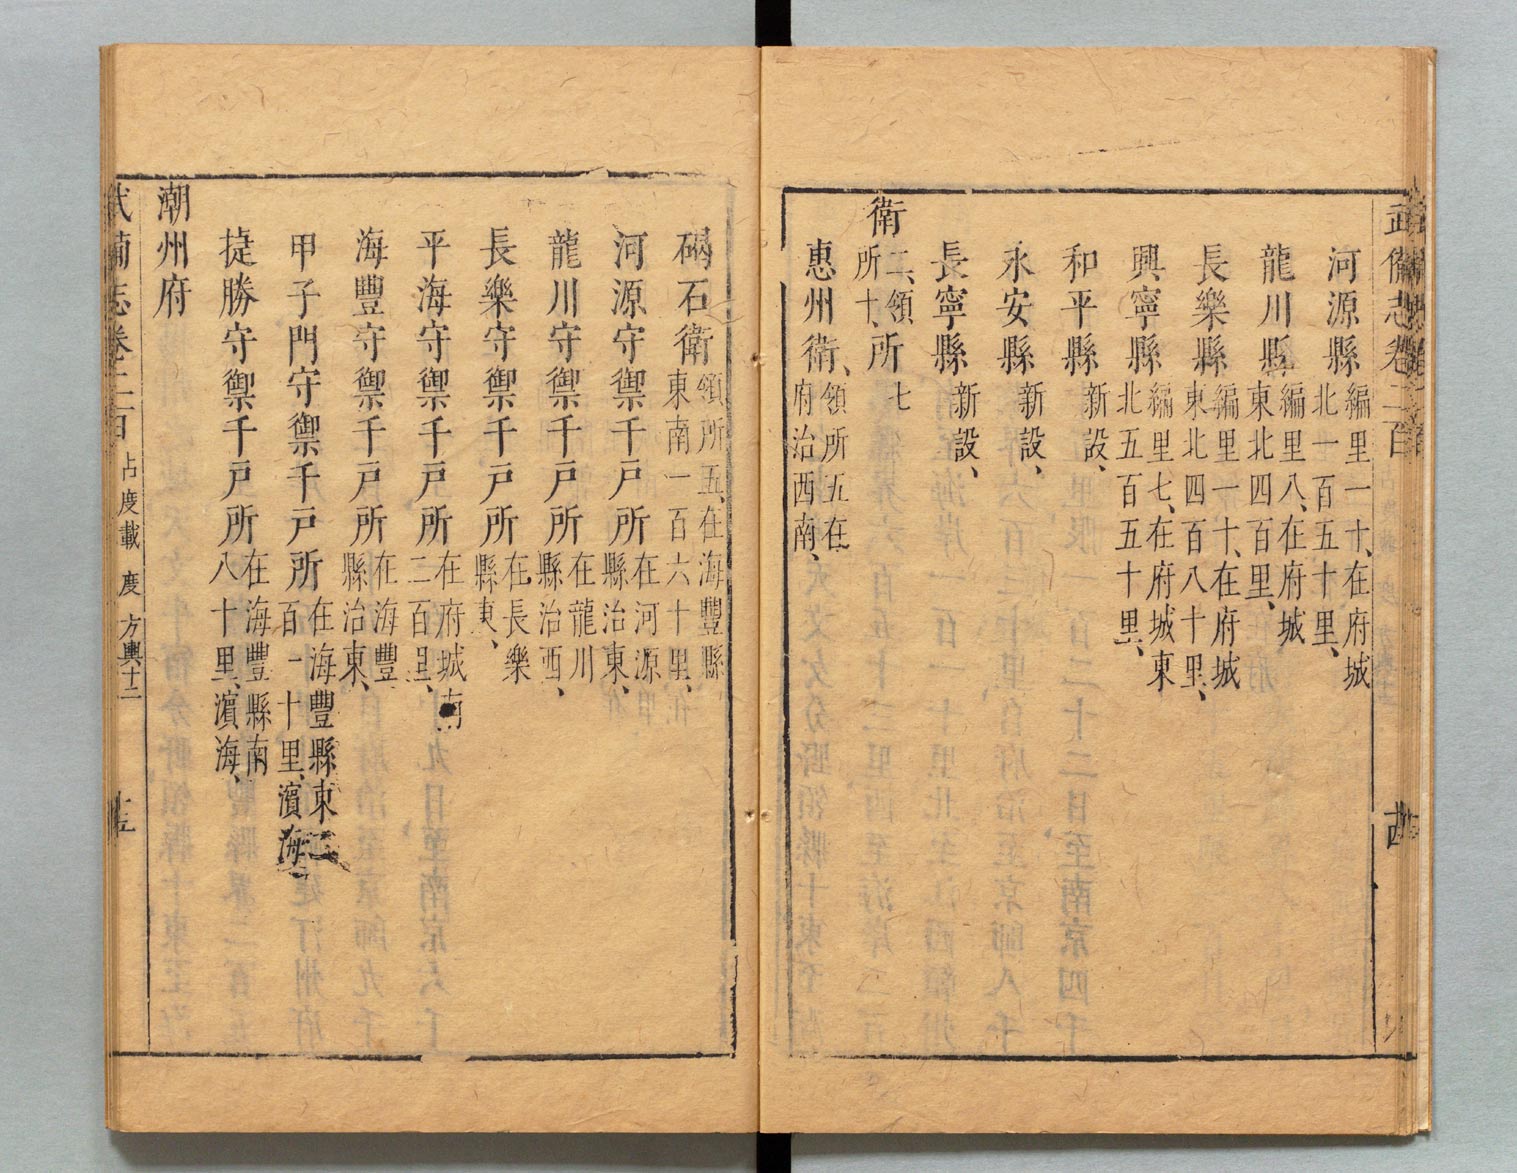 武備志卷二百
河源縣編里一十、在府城北一百五十里、
龍川縣編里八、在府城東北四百里、
長樂縣編里一十、在府城東北四百八十里、
興寧縣編里七、在府城東北五百五十里、
和平縣新設、
永安縣新設、
長寧縣新設、
衛二、領所十、所七
惠州衛、領所五在府治西南、
碣石衛領所五、在海豐縣東南一百六十里、
河源守禦千戶所在河源縣治東、
龍川守禦千戶所在龍川縣治西、
長樂守禦千戶所在長樂縣東、
平海守禦千戶所在府城南二百里、
海豐守禦千戶所在海豐縣治東、
甲子門守禦千戶所在海豐縣東二百一十里、濱海
捷勝守禦千戶所在海豐縣南八十里、濱海、
潮州府
武備志卷二百 占度載 度 方輿十二 十五